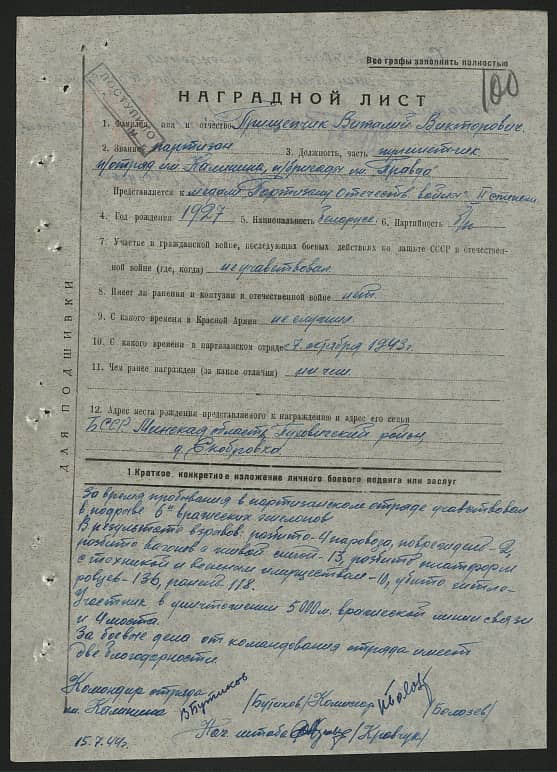 Все графы заполнять полностью
100
ПОСТУПИЛО
НАГРАДНОЙ ЛИСТ
1. Фамилия, имя и отчество Прищепчик Виталий Викторович.
2. Звание партизан 3. Должность, часть пулеметчик
п/отряд им. Калинина, п/бригады им. Правда
Представляется к медали "Партизану Отечеств. войны" II степени
4. Год рождения 1927 5. Национальность белорусс 6. Партийность б/п
7. Участие в гражданской войне, последующих боевых действиях по защите СССР и отечествен-
ной войне (где, когда) не учавствовал
8. Имеет ли ранения и контузии в отечественной войне нет.
9. С какого времени в Красной Армии не служил
10. С какого времени в партизанском отряде с 7 октября 1943 г.
11. Чем ранее награжден (за какие отличия) ни чем
12. Адрес места рождения представляемого к награждению и адрес его семьи
БССР. Минская область Пуховичский район
д. Скобровка
ДЛЯ ПОДШИВКИ
1. Краткое, конкретное изложение личного боевого подвига или заслуг
За время пребывания в партизанском отряде учавствовал
в подрыве 6и вражеских эшелонов
В результате взрывов: разбито-4 паровоза, повреждено-2,
разбито вагонов с живой силой-13, разбито платформ
с техникой и военным имуществом-10, убито гитле-
ровцев-136, ранено-118.
Участник в уничтожении 5000 м. вражеской линии связи
и 4 моста.
За боевые дела от командования отряда имеет
две благодарности.
Командир отряда
им. Калинина ВБутиков /Бутиков/ Комиссар /Болозев/
Нач. штаба /Кравчук/
15.7.44 г.